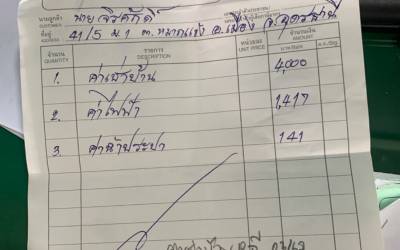 นามลูกค้า CUSTOMER นาย จิรศักดิ์
ที่อยู่ ADDRESS 41/5 ม.1 ต.หมากแข้ง อ.เมือง จ.อุดรธานี
จำนวน QUANTITY รายการ DESCRIPTION หน่วยละ UNIT PRICE จำนวนเงิน AMOUNT
1. ค่าเช่าบ้าน 4,000
2. ค่าไฟฟ้า 1,417
3. ค่าน้ำประปา 141